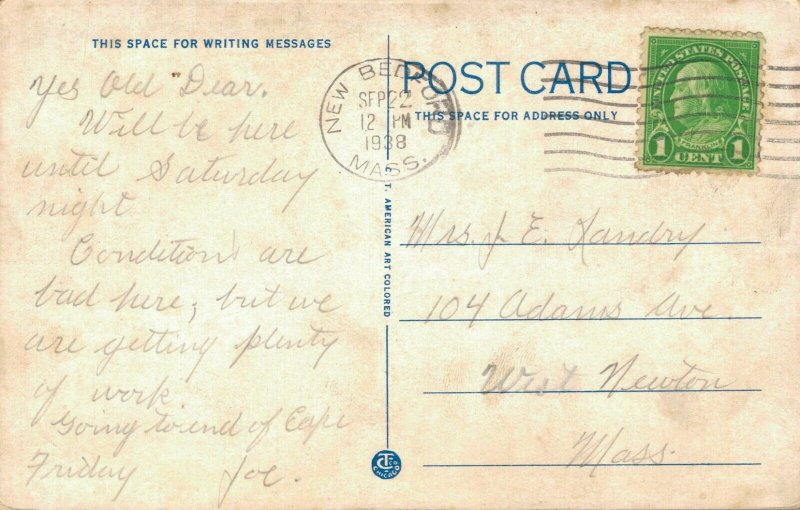 THIS SPACE FOR WRITING MESSAGES
Yes Old "Dear.
Will be here
until Saturday
night
Conditions are
bad here, but we
are getting plenty
of work.
Going to end of Cape
Friday Joe.
NEW BEDFORD
SEP 22
12 PM
1938
MASS.
C. T. AMERICAN ART COLORED
CHICAGO
POST CARD
THIS SPACE FOR ADDRESS ONLY
UNITED STATES POSTAGE
FRANKLIN
1 CENT 1
Mrs. J. E. Landry
104 Adams Ave.
West Newton
Mass.